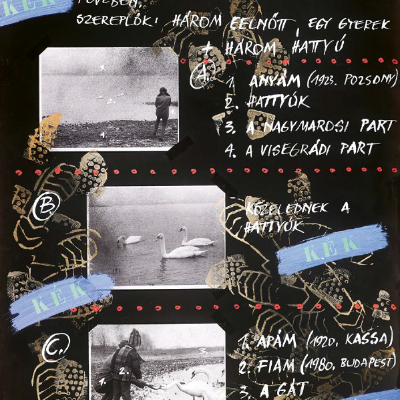 KÉK
SZEREPLŐK: HÁROM FELNŐTT, EGY GYEREK
+ HÁROM HATTYÚ
A
1. ANYÁM (1923. POZSONY)
2. HATTYÚK
3. A NAGYMAROSI PART
4. A VISEGRÁDI PART
B
KÖZELEDNEK A
HATTYÚK
KÉK
KÉK
C.
1. APÁM (1920, KASSA)
2. FIAM (1980, BUDAPEST)
3. A GÁT